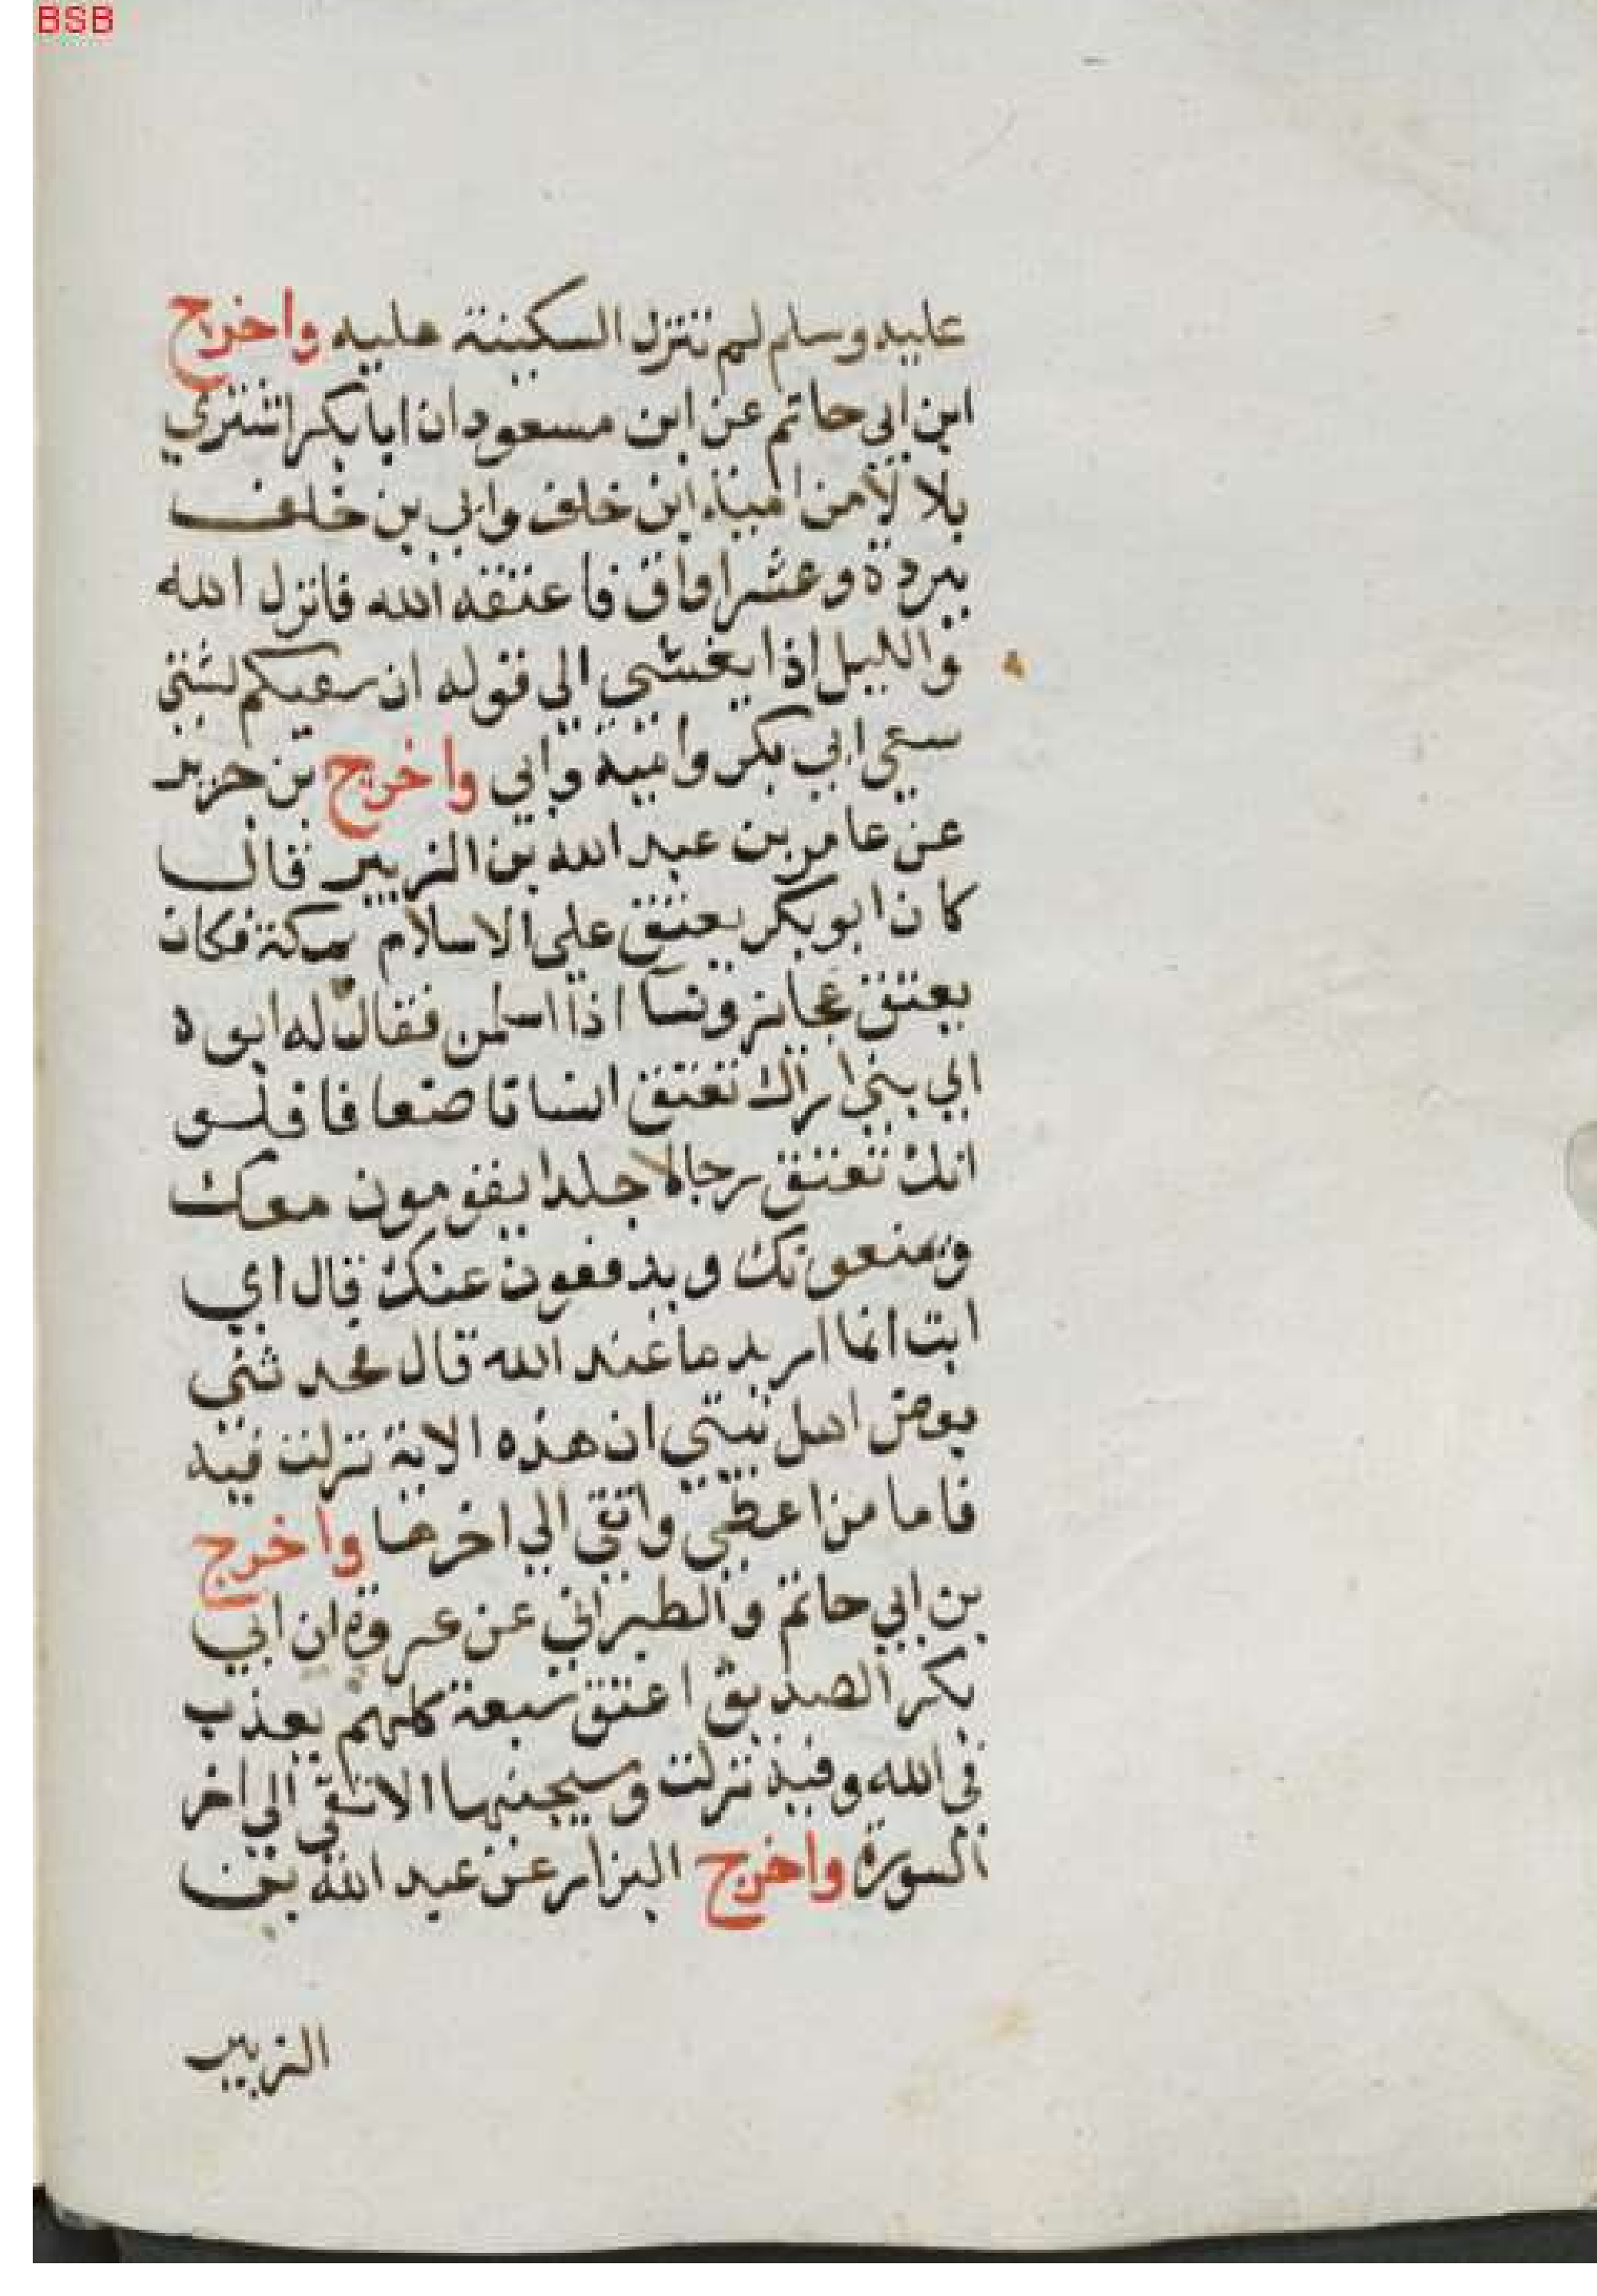 BSB
عليه وسلم لم تتزل السكينة عليه واخرج
ابن ابي حاتم عن ابن مسعود ان ابا بكر اشتري
بلا لا من امية ابن خلف وابي بن خلف
ببردة وعشر اواق فاعتقه الله فانزل الله
والليل اذا يغشى الى قوله ان سعيكم لشتي
سعي ابي بكر وامية وابي واخرج بن جرير
عن عامر بن عبد الله بن الزبير قال
كان ابو بكر يعتق على الاسلام بمكة فكان
يعتق عجايز ونسآ اذا اسلمن فقال له ابوه
اي بني اراك تعتق اناسا ضعافا فلو
انك تعتق رجالا جلدا يقومون معك
ويمنعونك ويدفعون عنك قال اي
ابت انما اريد ما عند الله قال فحدثني
بعض اهل بيتي ان هذه الاية نزلت فيه
فاما من اعطى واتقى الي اخرها واخرج
بن ابي حاتم والطبراني عن عروة ان ابي
بكر الصديق اعتق سبعة كلهم يعذب
في الله وفيه نزلت وسيجنبها الاتقى الي اخر
السورة واخرج البزار عن عبد الله بن
الزبير